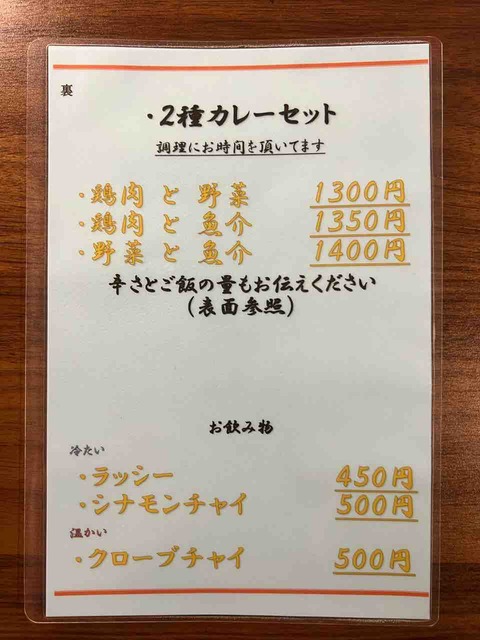 裏
・2種カレーセット
調理にお時間を頂いてます
・鶏肉 と 野菜 1300円
・鶏肉 と 魚介 1350円
・野菜 と 魚介 1400円
辛さとご飯の量もお伝えください
(表面参照)
お飲み物
冷たい
・ラッシー 450円
・シナモンチャイ 500円
温かい
・クローブチャイ 500円